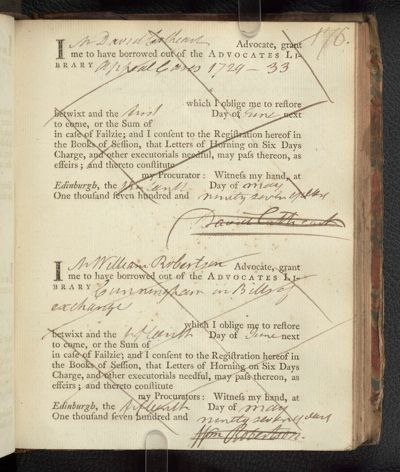 176.
I Mr David Cathcart Advocate, grant
me to have borrowed out of the ADVOCATES LI-
BRARY Appeal Cases 1729 – 33
which I oblige me to restore
betwixt and the first Day of June next
to come, or the Sum of
in case of Failzie; and I consent to the Registration hereof in
the Books of Session, that Letters of Horning on Six Days
Charge, and other executorials needful, may pass thereon, as
effeirs; and thereto constitute
my Procurator: Witness my hand, at
Edinburgh, the Day of may
One thousand seven hundred and ninety seven years
David Cathcart
I Mr William Robertson Advocate, grant
me to have borrowed out of the ADVOCATES LI-
BRARY Cunningham on Bills of
exchange
which I oblige me to restore
betwixt and the Day of June next
to come, or the Sum of
in case of Failzie; and I consent to the Registration hereof in
the Books of Session, that Letters of Horning on Six Days
Charge, and other executorials needful, may pass thereon, as
effeirs; and thereto constitute
my Procurators: Witness my hand, at
Edinburgh, the Day of may
One thousand seven hundred and ninety seven years
Wm Robertson.